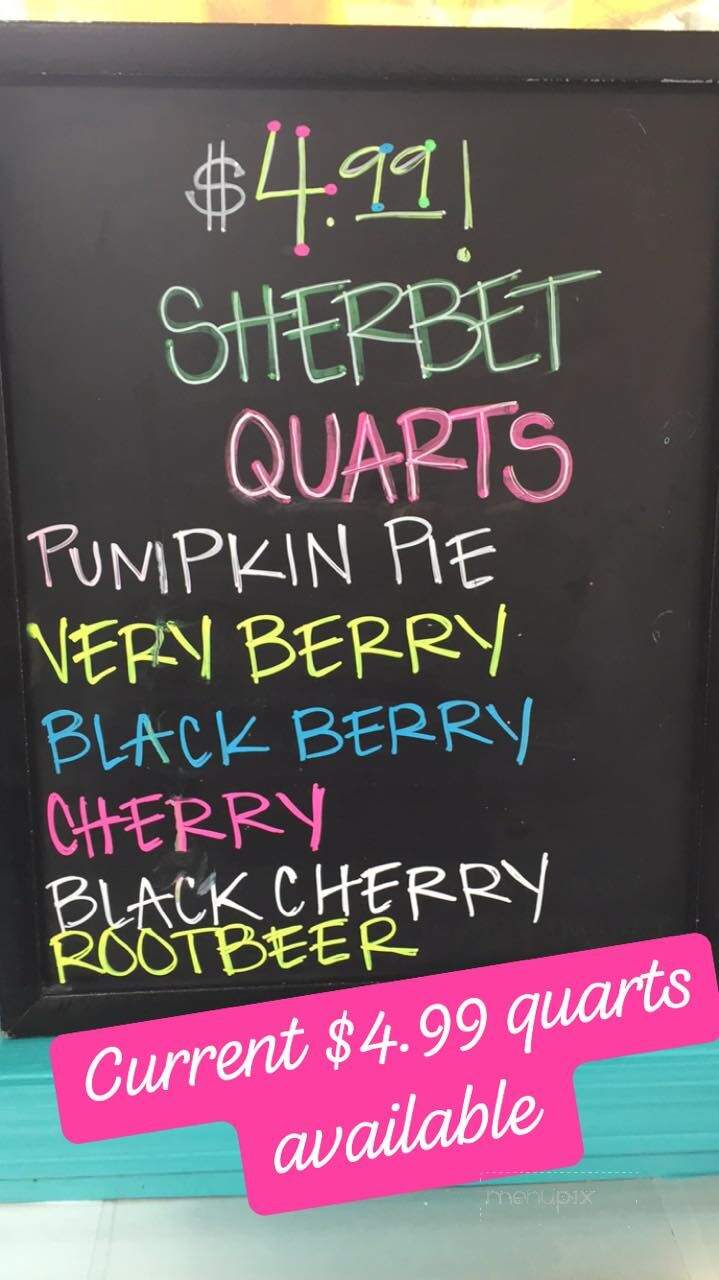 $4.99!
SHERBET
QUARTS
PUMPKIN PIE
VERY BERRY
BLACK BERRY
CHERRY
BLACK CHERRY
ROOTBEER
Current $4.99 quarts
available
menupix